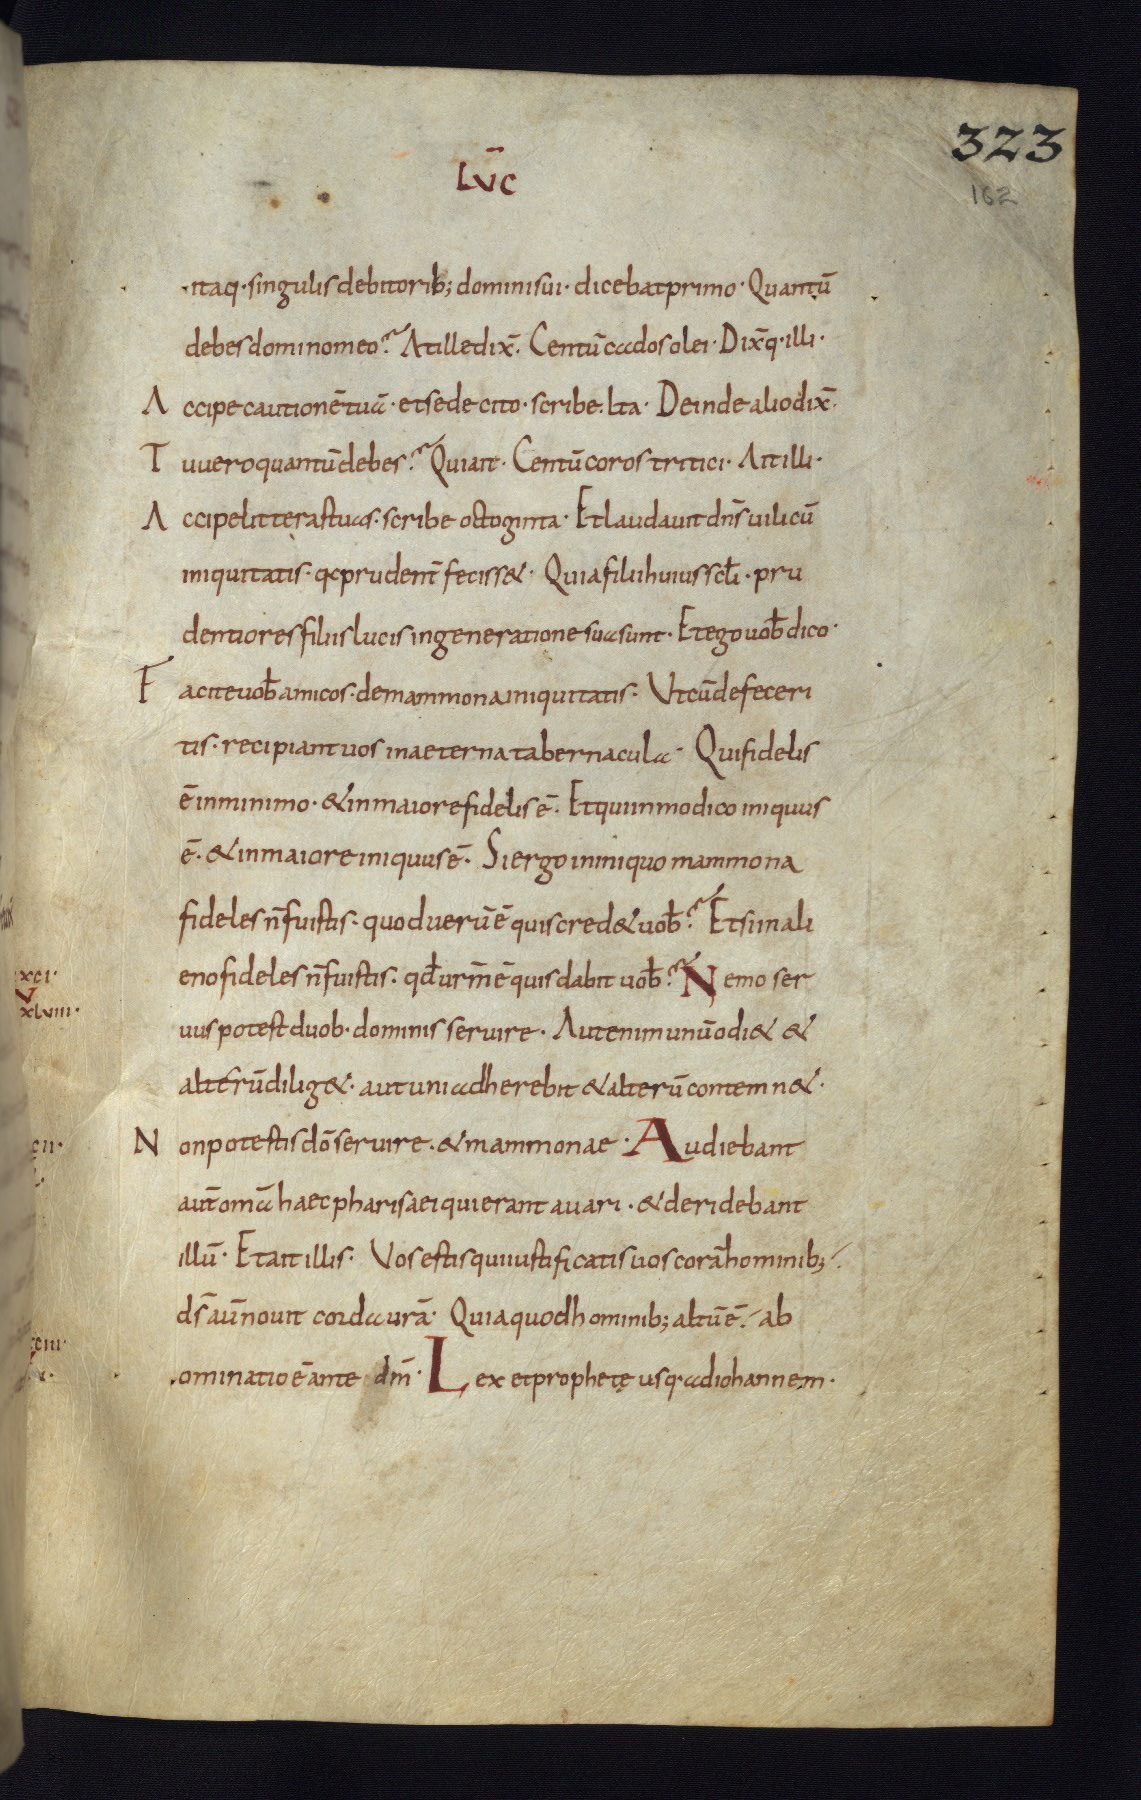 323
162
LuC̄
itaq· singulis debitorib; domini sui· dicebat primo· Quantū
debes domino meo? At ille dix̄· Centū cados olei· Dix̄q· illi·
Accipe cautionē tuā· et sede cito· scribe· lta· Deinde alio dix̄·
Tu uero quantū debes? Qui ait· Centū coros tritici· Ait illi·
Accipe litteras tuas· scribe octoginta· Et laudauit dn̄s uilicū
iniquitatis· q̄ prudent̄ feciss&· Quia filii huius scl̄i· pru
dentiores filiis lucis in generatione sua sunt· Et ego uob̄ dico·
Facite uob̄ amicos· de mammona iniquitatis· Ut cū defeceri
tis· recipiant uos in aeterna tabernacula· Qui fidelis
ē in minimo· & in maiore fidelis ē· Et qui in modico iniquus
ē· & in maiore iniquus ē· Si ergo in iniquo mammona
fideles n̄ fuistis· quod uerū ē quis cred& uob̄? Et si in ali
eno fideles n̄ fuistis· qd̄ urm̄ ē quis dabit uob̄? Nemo ser
uus potest duob· dominis seruire· Aut enim unū odi& &
alterū dilig&· aut uni adherebit & alterū contemn&·
Non potestis dō seruire· & mammonae· Audiebant
aut̄ omā haec pharisaei qui erant auari· & deridebant
illū· Et ait illis· Vos estis qui iustificatis uos corā hominib;
ds̄ aū nouit corda urā· Quia quod hominib; altū ē· ab
ominatio ē ante dm̄· Lex et prophetę usq· ad iohannem·
xci·
v
xlviii·
cii·
ciii·